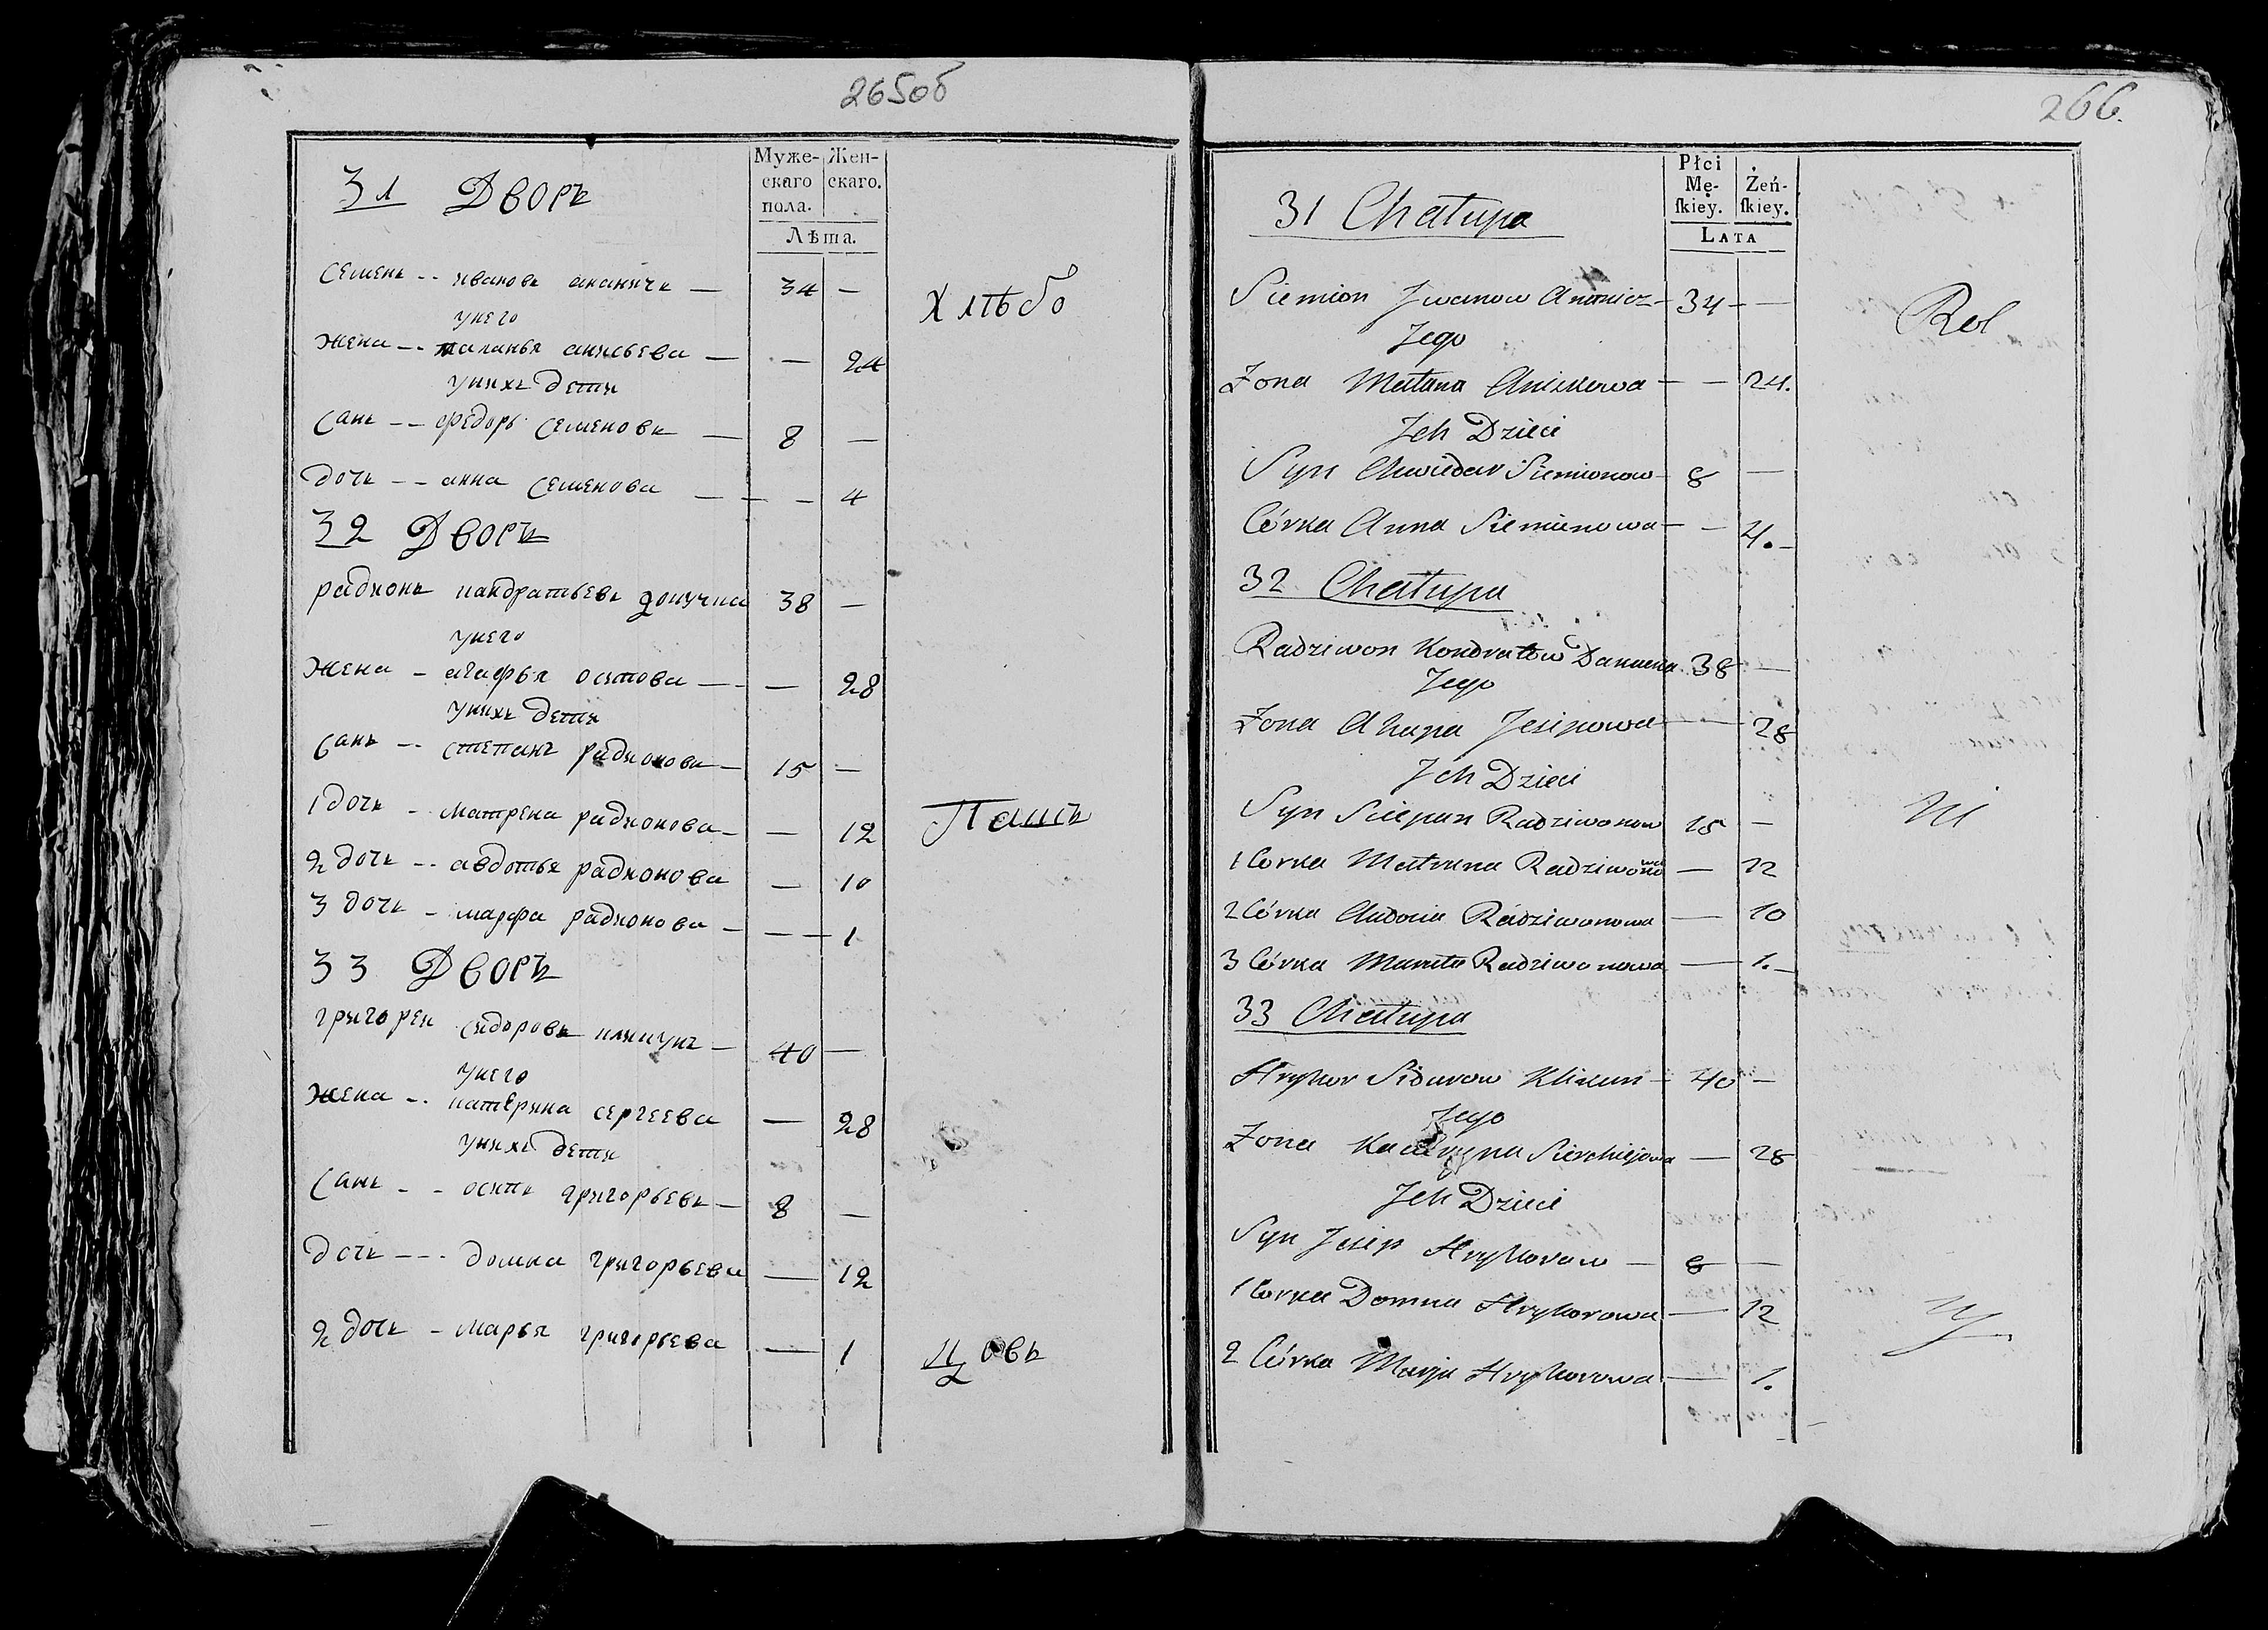 265об
Муже-
скаго
пола.
Жен-
скаго.
Лѣта.
31 Дворъ
Семенъ -- ивановъ ананичъ — 34 —
Хлѣбо
унего
жена -- маланья анисьева — — 24
унихъ дети
Санъ -- федоръ Семеновъ — 8 —
дочь -- анна Семенова — — — 4
32 Дворъ
радионъ кандратьевъ 38 —
унего
жена - агафья осипова — — 28
унихъ дети
Санъ -- степанъ радионовъ — 15 —
1 дочь - матрена радионова — — 12
Пашъ
2 дочь -- авдотья радионова — 10
3 дочь - марфа радионова — — — 1
33 Дворъ
григореи сидоровъ климунъ — 40 —
унего
жена -- катерина сергеева — 28
унихъ дети
Санъ - - осипъ григорьевъ — 8 —
дочь --- домна григорьева — 12
2 дочь - марья григорьева — 1
цовъ
266.
Płci
Mę-
ſkiey.
Żeń-
ſkiey.
LATA
31 Chałupa
Siemion Jwanow Ananicz — 34 — —
Rol
Jego
Żona Małana Anisiewa — — 24.
Jch Dzieci
Syn Chwiedar Siemionow — 8 —
Córka Anna Siemionowa — — 4. —
32 Chałupa
Radziwon Kondratow 38 —
Jego
Żona Ahapa Jesipowa — — 28
Jch Dzieci
Syn Sciepan Radziwonow 15 —
ni
1 Corka Matruna Radziwonowa — 12
2 Córka Audocia Radziwonowa — 10
3 Córka Maruta Radziwonowa — 1. —
33 Chałupa
Hryhor Sidorow Klimun — 40 —
Jego
Żona Kaciaryna Sierhiejowa — 28
Jch Dzieci
Syn Jesip Hryhorow — 8 —
1 Corka Domna Hryhorowa — 12
2 Córka Marja Hryhorowa — 1.